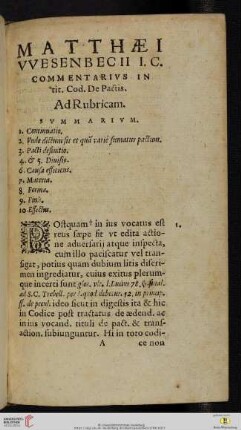 MATTHÆI
VVESENBECII I.C.
COMMENTARIVS IN
tit. Cod. De Pactis.
Ad Rubricam.
SVMMARIVM.
1. Continuatio.
2. Vnde dictum sit et quā variè sumatur pactum.
3. Pacti definitio.
4. & 5. Diuisio.
6. Causa efficiens.
7. Materia.
8. Forma.
9. Finis.
10 Effectus.
POstquam in ius vocatus est 1.
reus sæpe fit vt edita actio-
ne aduersarij atque inspecta,
cum illo paciscatur vel tran-
sigat, potius quam dubium litis discri-
men ingrediatur, cuius exitus plerum-
que incerti sunt
ad S.C. Trebell. 52. in princip.
ff. de pecul. ideo sicut in digestis ita & hic
in Codice post tractatus de ædend. ac
in ius vocand. tituli de pact. & trans-
action. subiunguntur. Hi in toto codi-
A ce nou